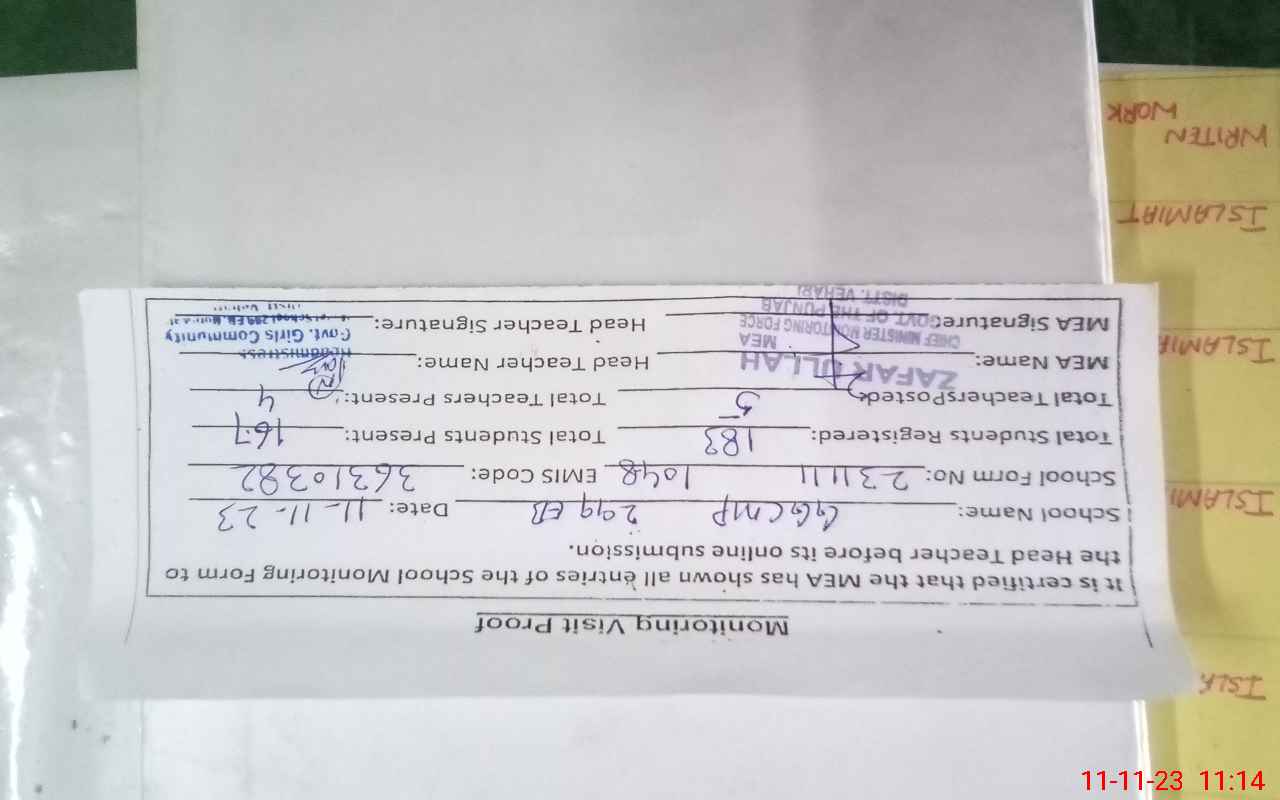 Monitoring Visit Proof
It is certified that the MEA has shown all entries of the School Monitoring Form to
the Head Teacher before its online submission.
School Name: GGCMP 299 EB Date: 11-11-23
School Form No: 231111 1048 EMIS Code: 36310382
Total Students Registered: 183 Total Students Present: 167
Total TeachersPosted: 5 Total Teachers Present: 4
MEA Name: Head Teacher Name:
MEA Signature: Head Teacher Signature:
ZAFAR ULLAH
MEA
CHIEF MINISTER MONITORING FORCE
GOVT. OF THE PUNJAB
DISTT. VEHARI
Headmistress
Govt. Girls Community
ISLAMI
ISLAMIA
ISLAMIAT
WRITEN
WORK
11-11-23 11:14